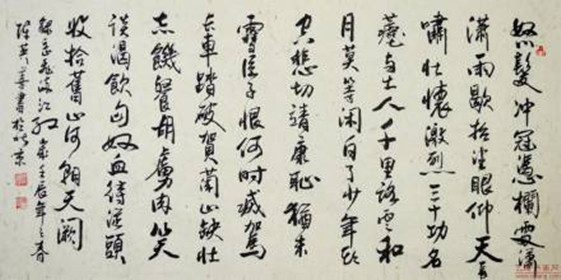 怒髮冲冠憑欄處瀟
瀟雨歇抬望眼仰天長
嘯壯懷激烈三十功名
塵与土八千里路雲和
月莫等闲白了少年頭
空悲切靖康恥猶未
雪臣子恨何时滅駕
長車踏破賀蘭山缺壯
志饑餐胡虜肉笑
談渴飲匈奴血待從頭
收拾舊山河朝天闕
岳飛满江红歲壬辰年之春
書於北京